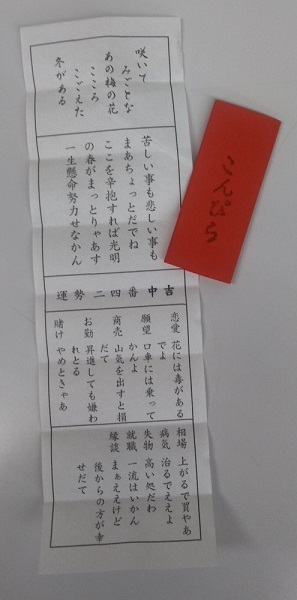 咲いて
みごとな
あの梅の花
こころ
こごえた
冬がある
苦しい事も悲しい事も
まあちょっとだでね
ここを辛抱すれば光明
の春がまっとりゃあす
一生懸命努力せなかん
運勢二四番中吉
恋愛 花には毒がある
でよ
願望 口車には乗って
かんよ
商売 山気を出すと損
だて
お勤 昇進しても嫌わ
れとる
賭け やめときゃあ
相場 上がるで買やあ
病気 治るでええよ
失物 高い処だわ
就職 一流はいかん
縁談 まぁええけど
後からの方が幸
せだて
こんぴら